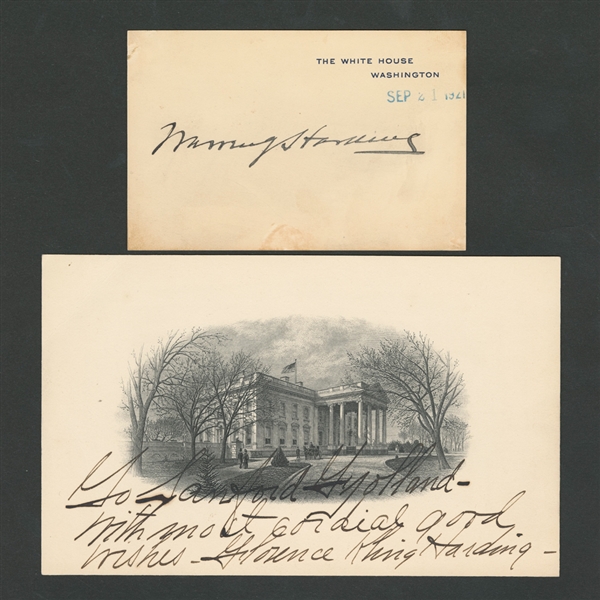 THE WHITE HOUSE
WASHINGTON
SEP 21 1921
Warren G Harding
To Sanford
with most cordial good
wishes - Florence Kling Harding -